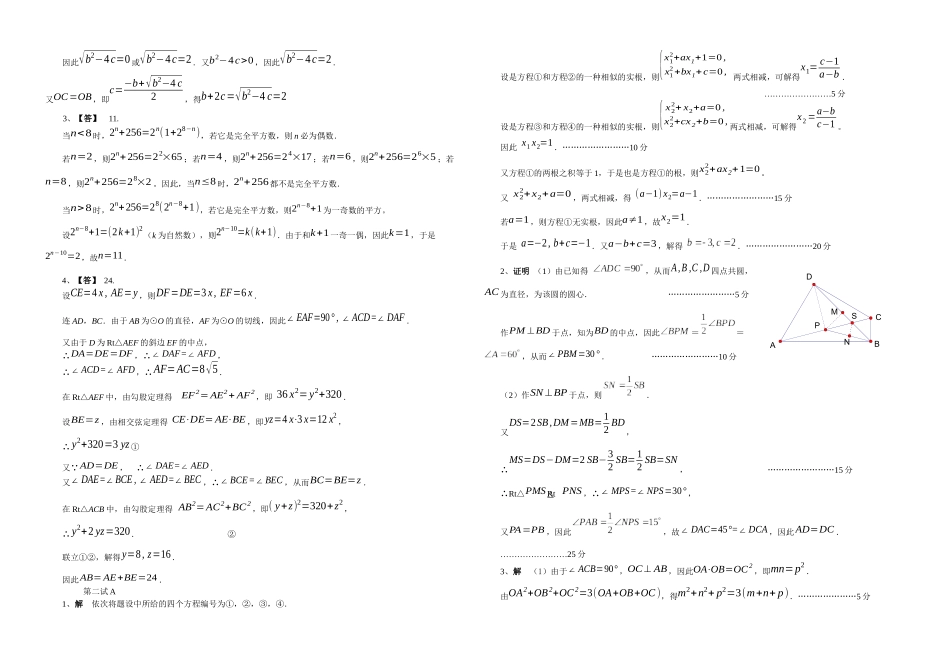 因此√(b²−4c)=0或√(b²−4c)=2. 又b²−4c>0，因此√(b²−4c)=2.
又OC=OB，即c=(−b+√(b²−4c))/2，得b+2c=√(b²−4c)=2
3、【答】 11.
当n<8时，2ⁿ+256=2ⁿ(1+2⁸⁻ⁿ)，若它是完全平方数，则 n 必为偶数.
若n=2，则2ⁿ+256=2²×65；若n=4，则2ⁿ+256=2⁴×17；若n=6，则2ⁿ+256=2⁶×5；若
n=8，则2ⁿ+256=2⁸×2，因此，当n≤8时，2ⁿ+256都不是完全平方数.
当n>8时，2ⁿ+256=2⁸(2ⁿ⁻⁸+1)，若它是完全平方数，则2ⁿ⁻⁸+1为一奇数的平方。
设2ⁿ⁻⁸+1=(2k+1)²（k 为自然数），则2ⁿ⁻¹⁰=k(k+1). 由于和k+1一奇一偶，因此k=1，于是
2ⁿ⁻¹⁰=2，故n=11.
4、【答】 24.
设CE=4x, AE=y，则DF=DE=3x, EF=6x.
连 AD，BC. 由于 AB 为⊙O 的直径，AF 为⊙O 的切线，因此∠EAF=90°, ∠ACD=∠DAF.
又由于 D 为 Rt△AEF 的斜边 EF 的中点，
∴DA=DE=DF，∴∠DAF=∠AFD,
∴∠ACD=∠AFD，∴AF=AC=8√5.
在 Rt△AEF 中，由勾股定理得 EF²=AE²+AF²，即 36x²=y²+320.
设BE=z，由相交弦定理得 CE·DE=AE·BE，即yz=4x·3x=12x²,
∴y²+320=3yz ①
又∵AD=DE， ∴∠DAE=∠AED.
又∠DAE=∠BCE, ∠AED=∠BEC，∴∠BCE=∠BEC，从而BC=BE=z.
在 Rt△ACB 中，由勾股定理得 AB²=AC²+BC²，即(y+z)²=320+z²,
∴y²+2yz=320. ②
联立①②，解得y=8, z=16.
因此AB=AE+BE=24.
第二试 A
1、解 依次将题设中所给的四个方程编号为①，②，③，④.
设是方程①和方程②的一种相似的实根，则{x₁²+ax₁+1=0, x₁²+bx₁+c=0, 两式相减，可解得x₁=(c−1)/(a−b).
……………………5 分
设是方程③和方程④的一种相似的实根，则{x₂²+x₂+a=0, x₂²+cx₂+b=0, 两式相减，可解得x₂=(a−b)/(c−1)。
因此 x₁x₂=1. ……………………10 分
又方程①的两根之积等于 1，于是也是方程①的根，则x₂²+ax₂+1=0。
又 x₂²+x₂+a=0，两式相减，得 (a−1)x₂=a−1. ……………………15 分
若a=1，则方程①无实根，因此a≠1，故x₂=1.
于是 a=−2, b+c=−1. 又a−b+c=3，解得 b=-3, c=2. ……………………20 分
2、证明 （1）由已知得 ∠ADC=90°，从而A,B,C,D四点共圆，
AC为直径，为该圆的圆心. ……………………5 分
作PM⊥BD于点，知为BD的中点，因此∠BPM=1/2∠BPD=
∠A=60°，从而∠PBM=30°. ……………………10 分
（2）作SN⊥BP于点，则 SN=1/2SB.
又DS=2SB, DM=MB=1/2BD,
∴MS=DS−DM=2SB−3/2SB=1/2SB=SN, ……………………15 分
∴Rt△PMS≌Rt PNS，∴∠MPS=∠NPS=30°,
又PA=PB，因此∠PAB=1/2∠NPS=15°，故∠DAC=45°=∠DCA，因此AD=DC.
……………………25 分
3、解 （1）由于∠ACB=90°，OC⊥AB，因此OA·OB=OC²，即mn=p².
由OA²+OB²+OC²=3(OA+OB+OC)，得m²+n²+p²=3(m+n+p). …………………5 分
D
M
S
C
P
A
N
B